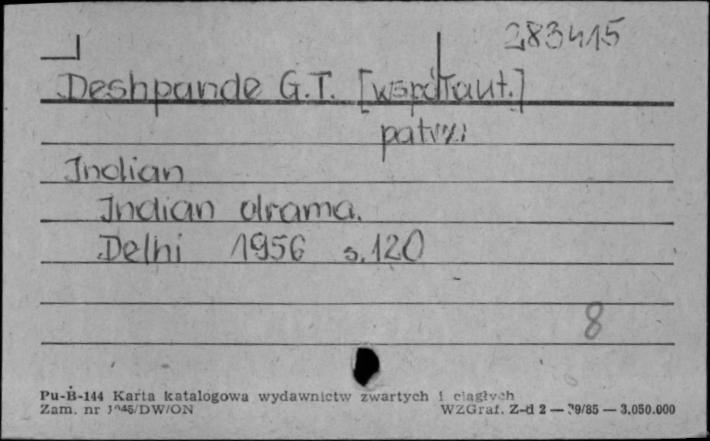 283415
Deshpande G.T. [współaut.]
patrz:
Indian
Indian drama.
Delhi 1956 s. 120
8
Pu-B-144 Karta katalogowa wydawnictw zwartych i ciągłych
Zam. nr /DW/ON WZGraf. Z-d 2 — 39/85 — 3.050.000